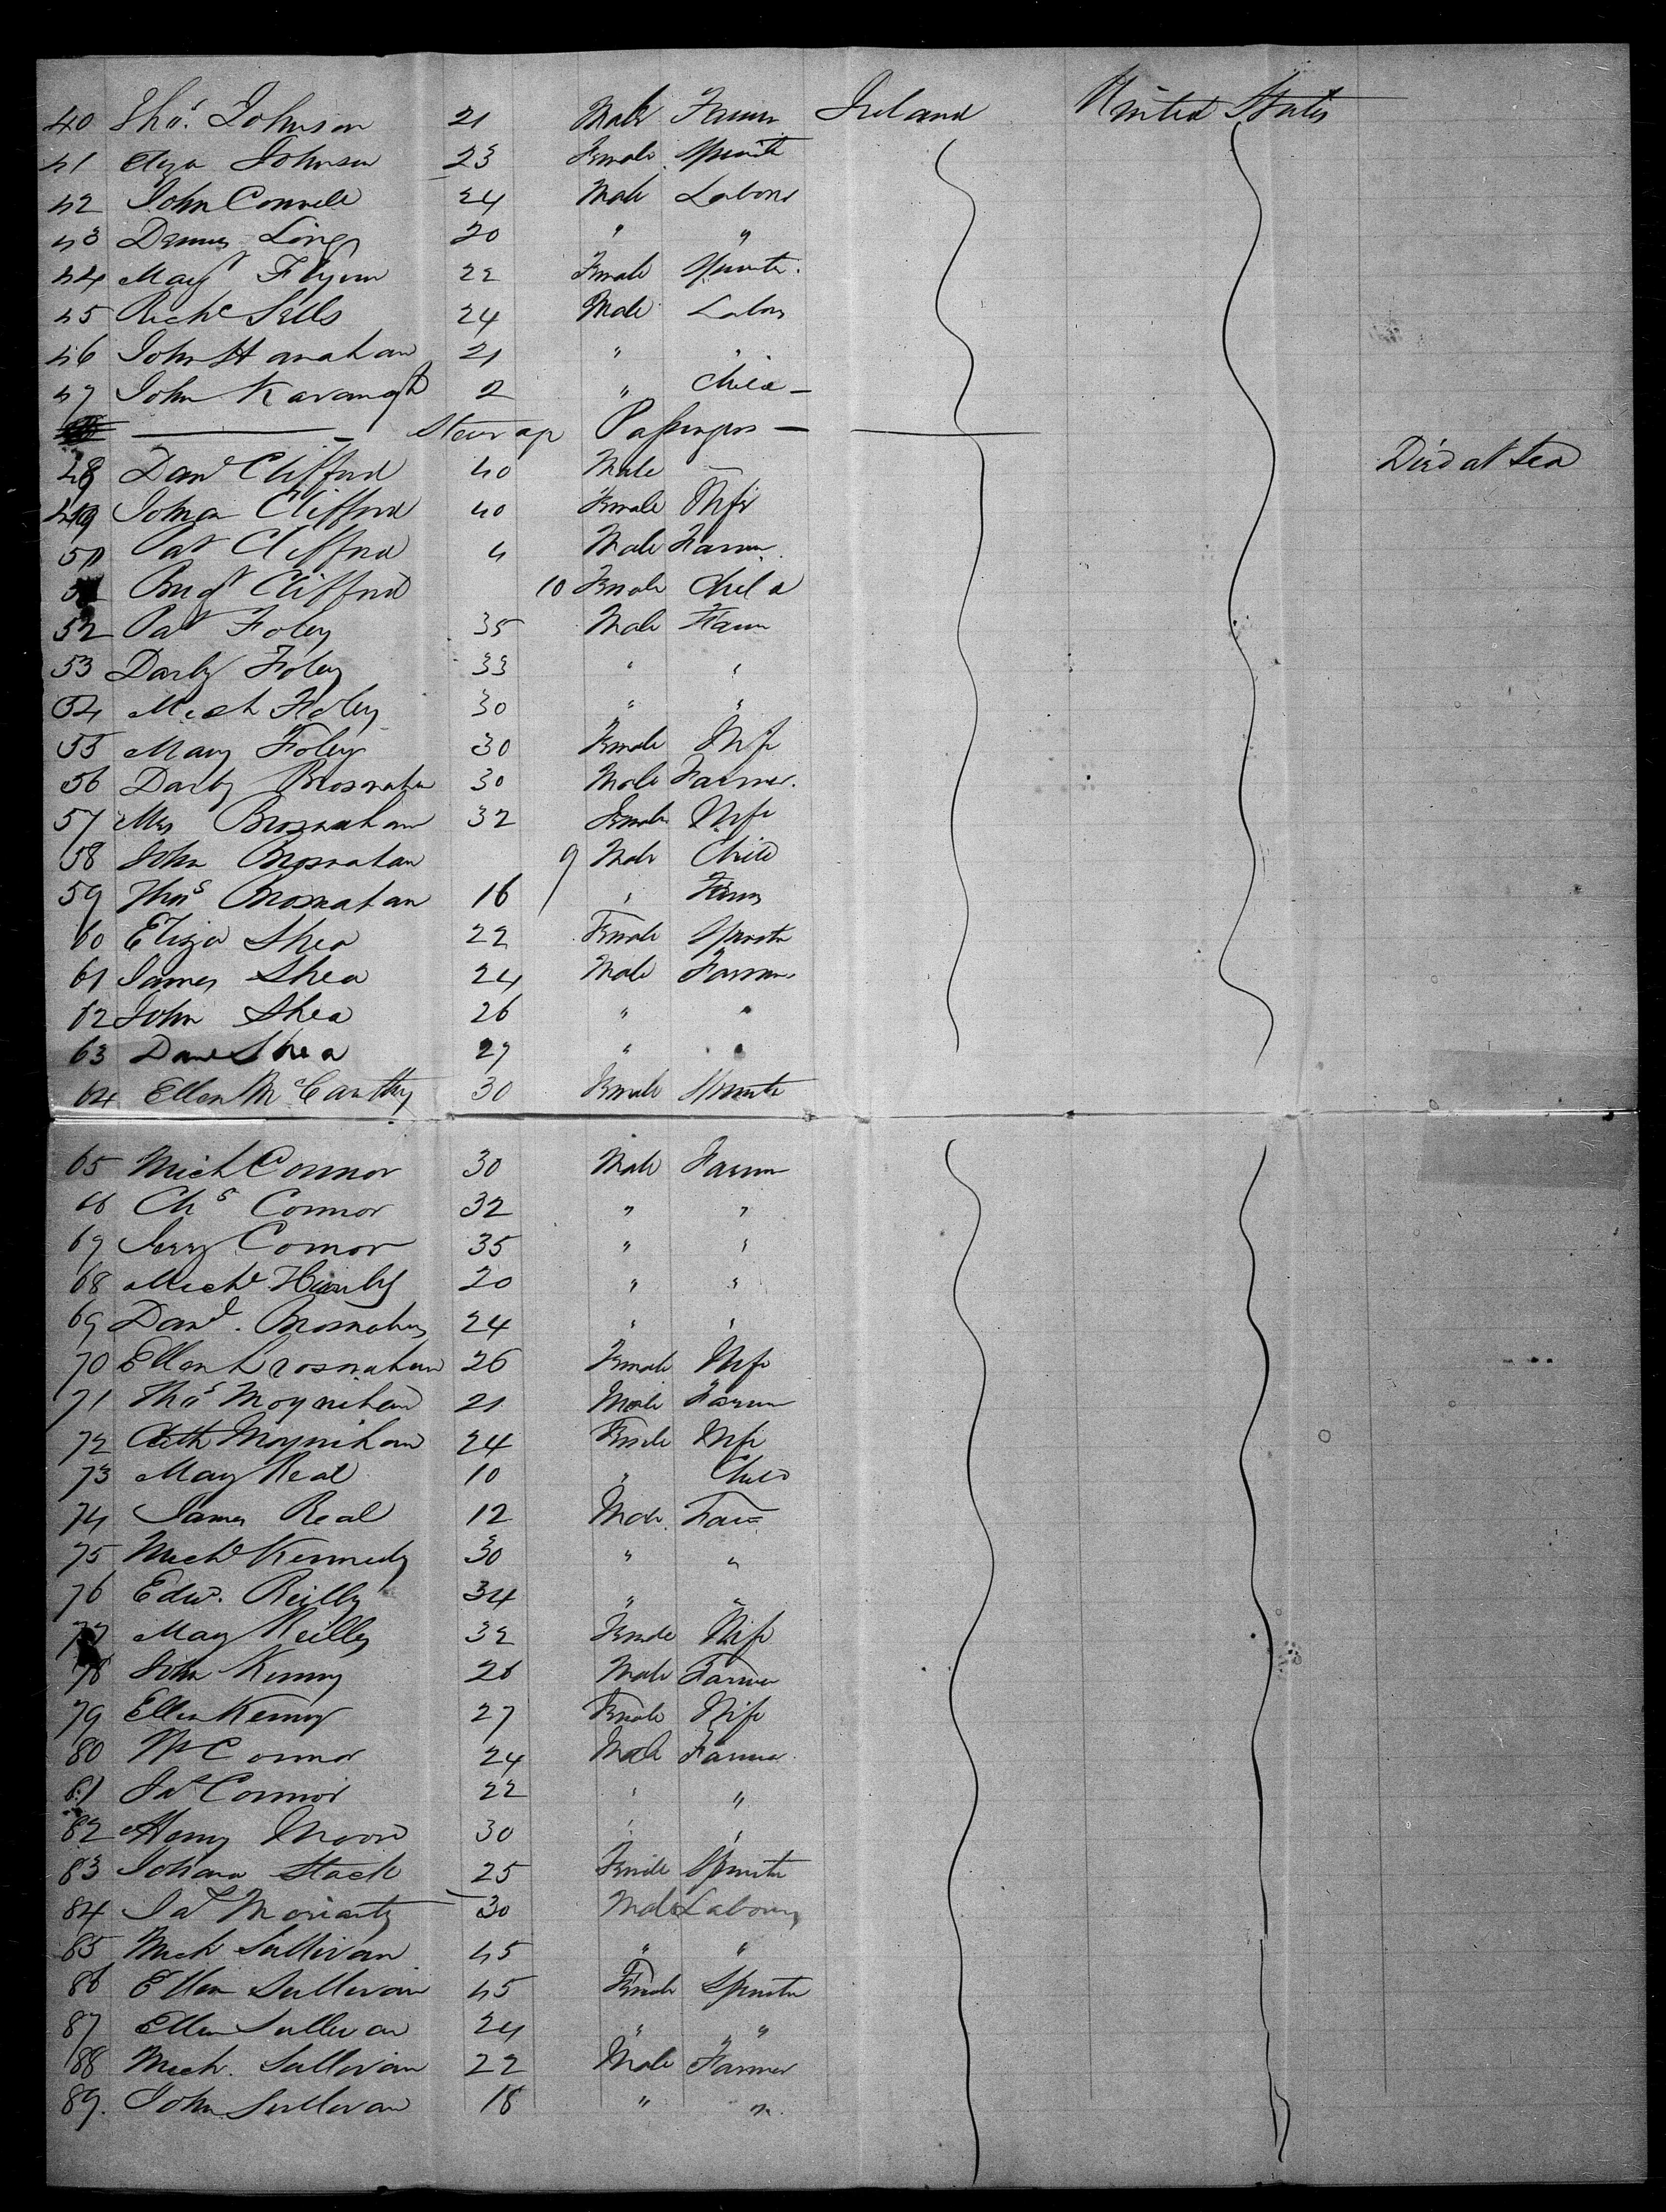 40 Thos. Johnson 21 Male Farmer Ireland United States
41 Eliza Johnson 23 Female Spinster
42 John Connell 24 Male Labour
43 Dennis Ling 20 " "
44 Mary Flynn 22 Female Spinster
45 Richd Sells 24 Male Labour
46 John Hanahan 21 " "
47 John Kavanagh 2 " Child —
Steerage Passengers —
48 Danl Clifford 40 Male — Died at Sea
49 Johana Clifford 40 Female Wife
50 Pat Clifford 4 Male Farmer
51 Bridgt Clifford 10 Female Child
52 Pat Foley 35 Male Farm
53 Darby Foley 33 " "
54 Mich Foley 30 " "
55 Mary Foley 30 Female Wife
56 Darby Brosnahan 30 Male Farmer.
57 Mrs Brosnahan 32 Female Wife
58 John Brosnahan 9 Male Child
59 Thos Brosnahan 16 " Farmer
60 Eliza Shea 22 Female Spinster
61 James Shea 24 Male Farmer
62 John Shea 26 " "
63 Danl Shea 27 " "
64 Ellen McCarthy 30 Female Spinster
65 Mich Connor 30 Male Farmer
66 Chs Connor 32 " "
67 Jerry Connor 35 " "
68 Michl 20 " "
69 Danl. Brosnahan 24 " "
70 Ellen Brosnahan 26 Female Wife
71 Thos Moynihan 21 Male Farmer
72 Cath Moynihan 24 Female Wife
73 Mary Real 10 " Child
74 James Real 12 Male Farm
75 Michl Kennedy 30 " "
76 Edwd. Reilly 34 " "
77 Mary Reilly 32 Female Wife
78 John Kenny 26 Male Farmer
79 Ellen Kenny 27 Female Wife
80 Wm Connor 24 Male Farmer
81 Jas Connor 22 " "
82 Henry Moore 30 " "
83 Johana Stack 25 Female Spinster
84 Jas Moriarty 30 Male Labourer
85 Mich Sullivan 45 " "
86 Ellen Sullivan 45 Female Spinster
87 Ellen Sullivan 24 " "
88 Mich. Sullivan 22 Male Farmer
89. John Sullivan 18 " "